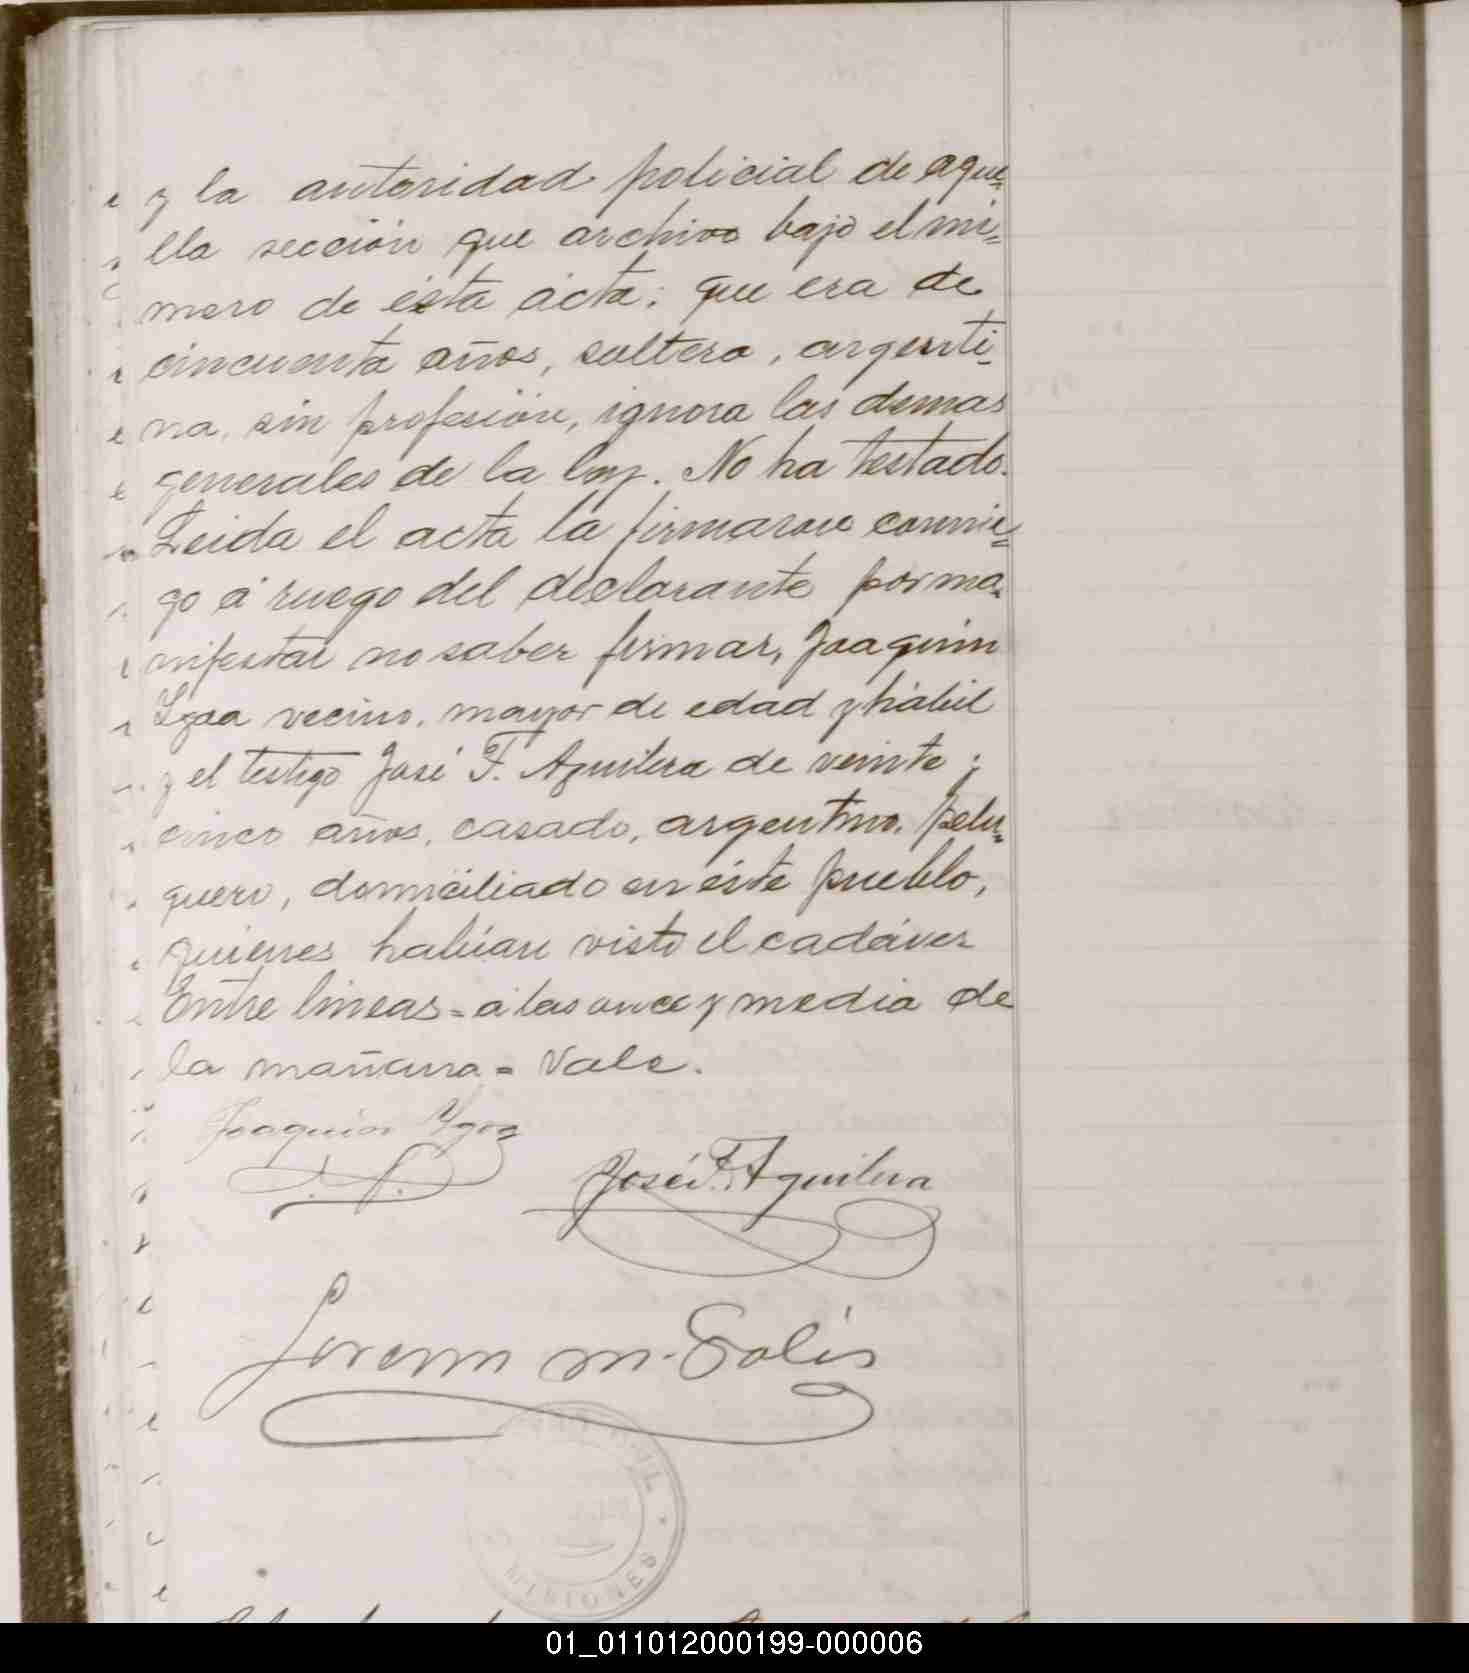 y la autoridad policial de aque=
lla sección que archivo bajo el nú=
mero de ésta acta: que era de
cincuenta años, soltera, argenti=
na, sin profesión, ignora las demas
generales de la ley. No ha testado.
Leida el acta la firmaron conmi=
go á ruego del declarante por ma=
nifestar no saber firmar, Joaquin
vecino, mayor de edad y hábil
y el testigo José F. Aguilera de veinte y
cinco años, casado, argentino, pelu=
quero, domiciliado en éste pueblo,
quienes habían visto el cadáver
Entre lineas = a las once y media de
la mañana = Vale.
Joaquin
José F. Aguilera
M. Solis
MISIONES
01_011012000199-000006